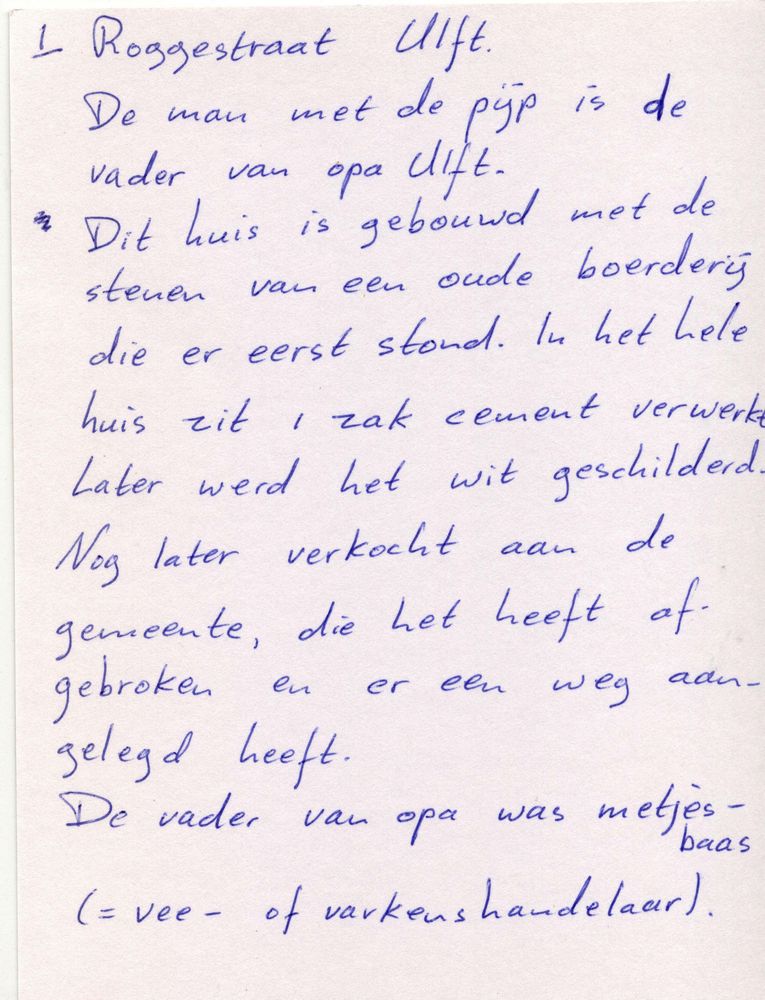 1 Roggestraat Ulft.
De man met de pijp is de
vader van opa Ulft.
* Dit huis is gebouwd met de
stenen van een oude boerderij
die er eerst stond. In het hele
huis zit 1 zak cement verwerkt
Later werd het wit geschilderd.
Nog later verkocht aan de
gemeente, die het heeft af-
gebroken en er een weg aan-
gelegd heeft.
De vader van opa was metjès-
baas
(= vee- of varkenshandelaar).